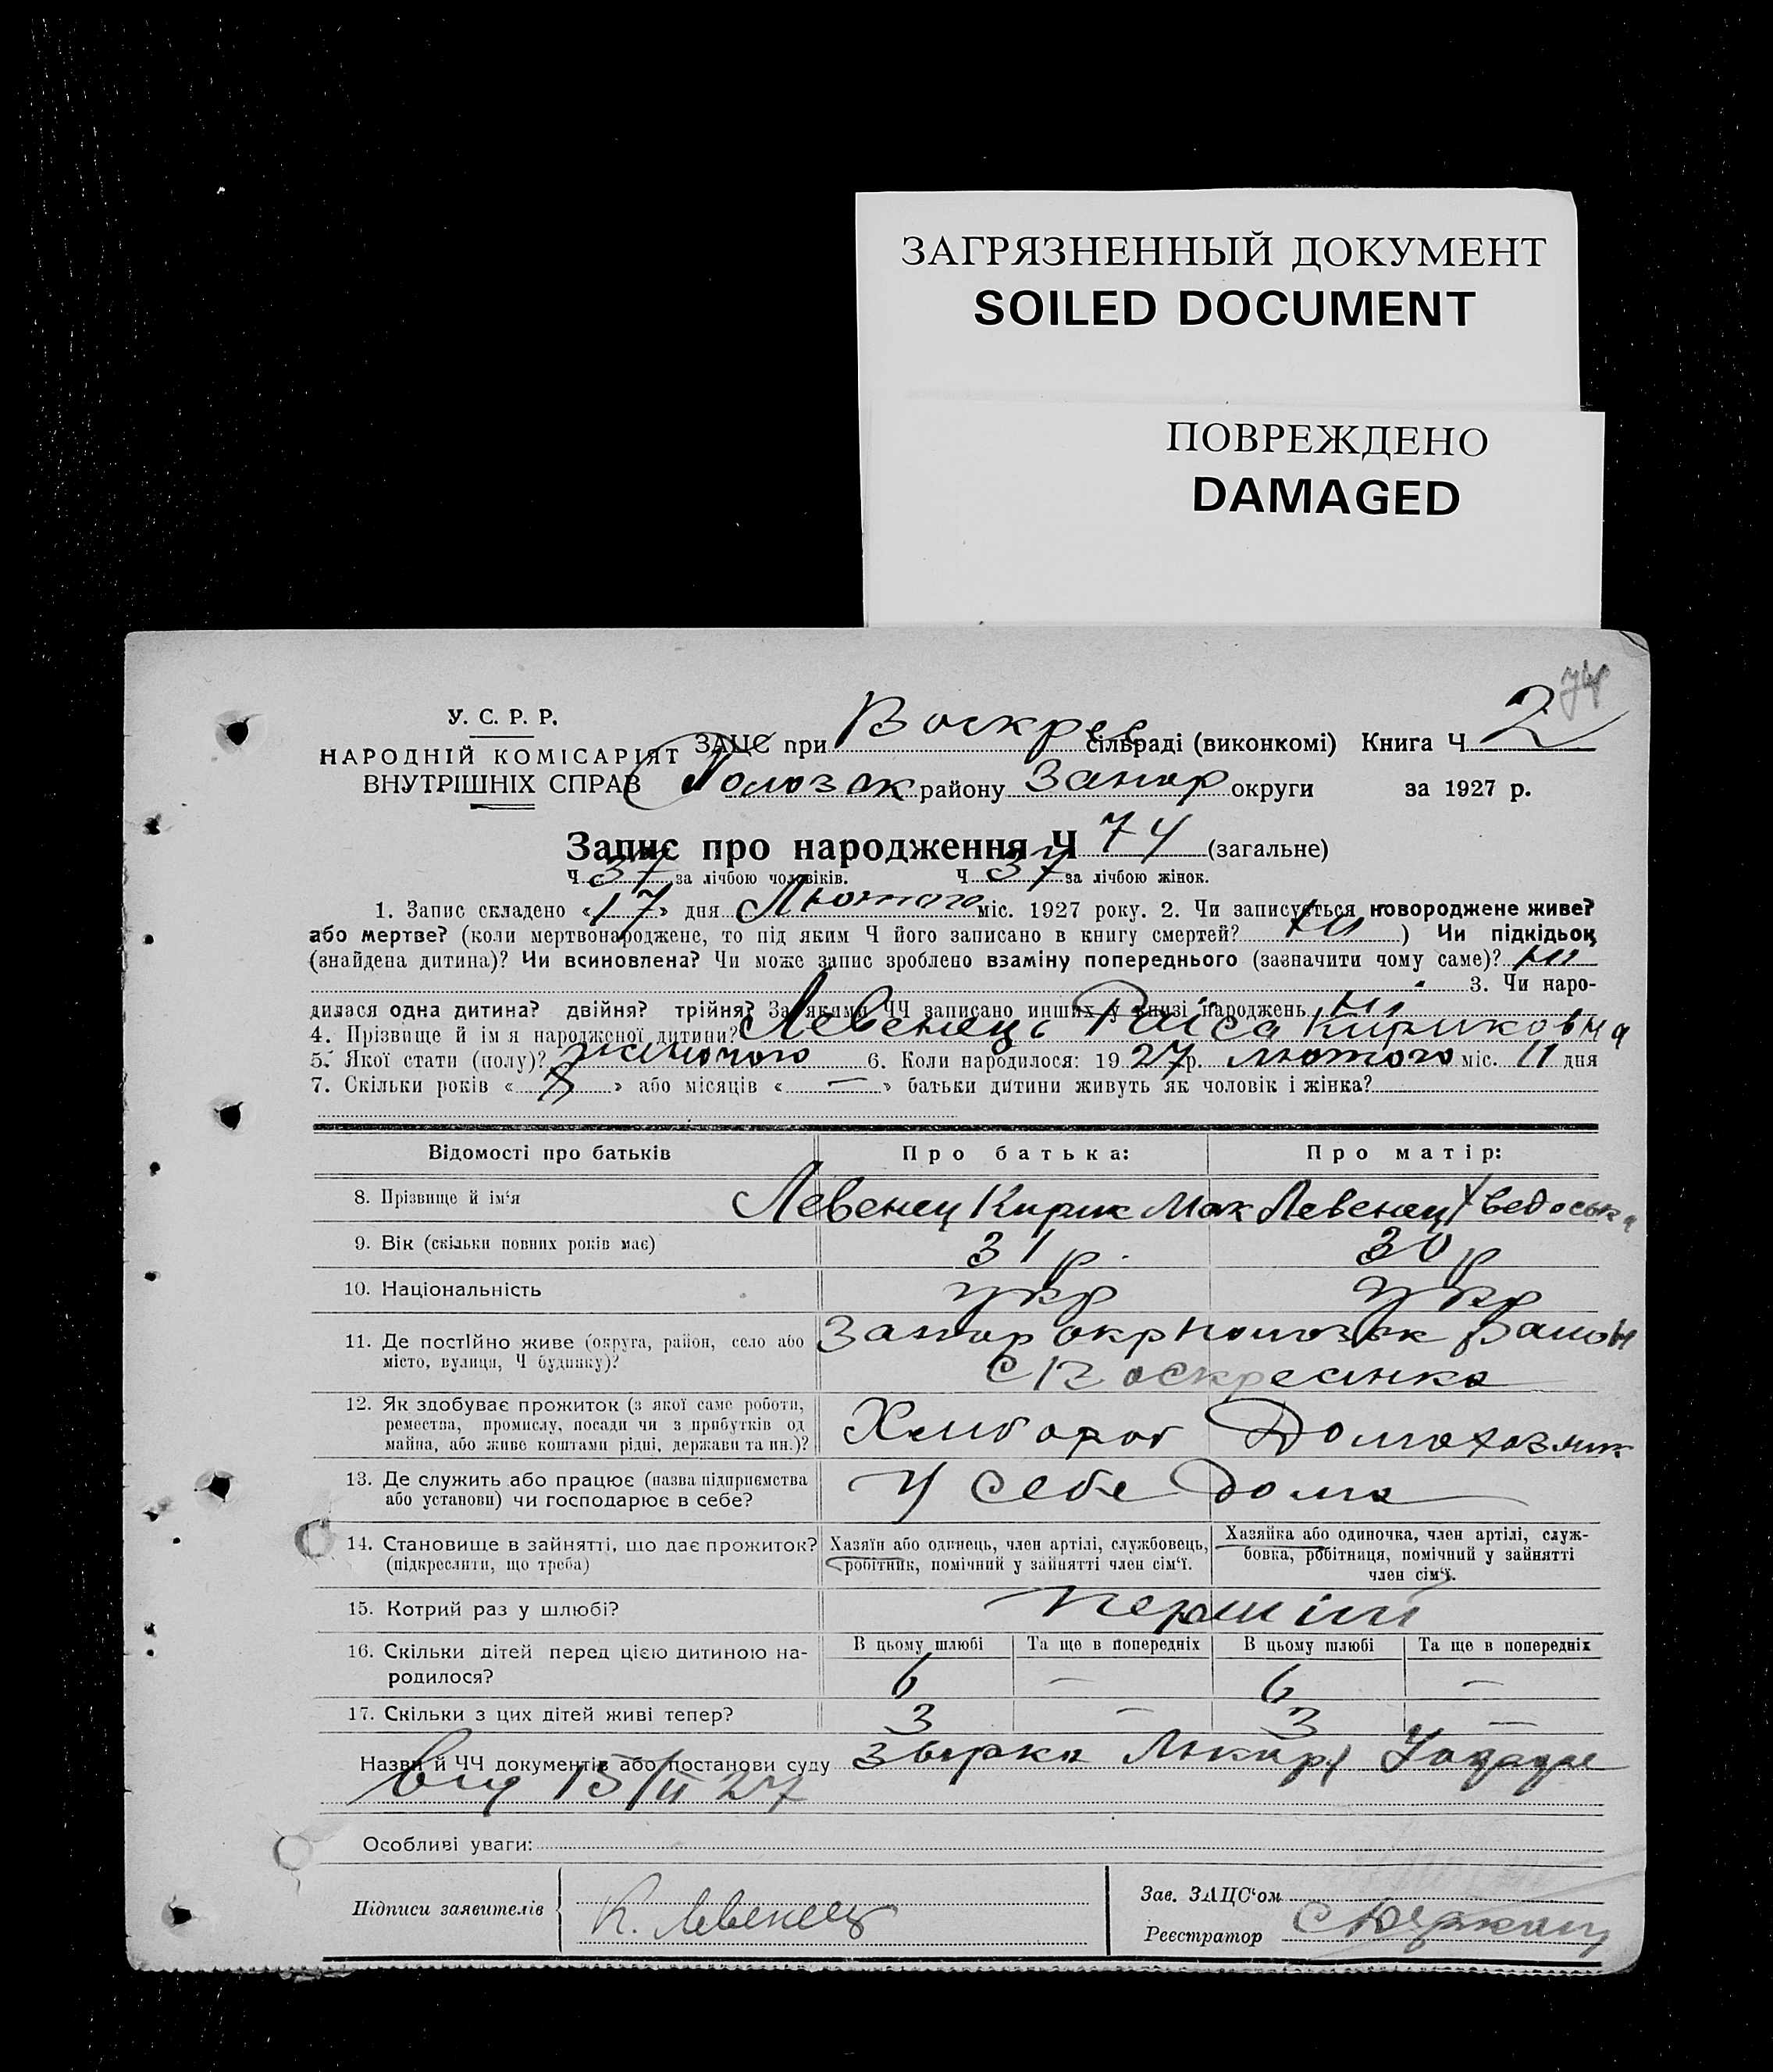 ЗАГРЯЗНЕННЫЙ ДОКУМЕНТ
SOILED DOCUMENT
ПОВРЕЖДЕНО
DAMAGED
74
У. С. Р. Р.
НАРОДНІЙ КОМІСАРІЯТ
ВНУТРІШНІХ СПРАВ
ЗАЦС при Воскрес сільраді (виконкомі) Книга Ч 2
району Запор округи за 1927 р.
Запис про народження Ч 74 (загальне)
Ч 37 за лічбою чоловіків. Ч 37 за лічбою жінок.
1. Запис складено «17» дня Лютого міс. 1927 року. 2. Чи записується новороджене живе?
або мертве? (коли мертвонароджене, то під яким Ч його записано в книгу смертей? ні) Чи підкідьок
(знайдена дитина)? Чи всиновлена? Чи може запис зроблено взаміну попереднього (зазначити чому саме)? ні
3. Чи наро-
дилася одна дитина? двійня? трійня? За якими ЧЧ записано инших у книзі народжень ні
4. Прізвище й ім я народженої дитини? Левенець Раїса Кириковна
5. Якої стати (полу)? жіночого 6. Коли народилося: 1927 р. лютого міс. 11 дня
7. Скільки років « » або місяців « — » батьки дитини живуть як чоловік і жінка?
Відомості про батьків Про батька: Про матір:
8. Прізвище й ім'я Левенец Кирик Мак Левенец Хведоська
9. Вік (скільки повних років має) 31 р. 30 р
10. Національність укр укр
11. Де постійно живе (округа, район, село або Запор окр
місто, вулиця, Ч будинку)? с Воскресинка
12. Як здобуває прожиток (з якої саме роботи,
ремества, промислу, посади чи з прибутків од Хлибороб Домохозяик
майна, або живе коштами рідні, держави та ин.)?
13. Де служить або працює (назва підприємства У себе дома
або установи) чи господарює в себе?
14. Становище в зайнятті, що дає прожиток? Хазяїн або одинець, член артілі, службовець, Хазяйка або одиночка, член артілі, служ-
(підкреслити, що треба) робітник, помічний у зайнятті член сім'ї. бовка, робітниця, помічний у зайнятті
член сім'ї.
15. Котрий раз у шлюбі? перший
В цьому шлюбі Та ще в попередніх В цьому шлюбі Та ще в попередніх
16. Скільки дітей перед цією дитиною на-
родилося? 6 — 6 —
17. Скільки з цих дітей живі тепер? 3 — 3 —
Назви й ЧЧ документів або постанови суду
від 15/II 27
Особливі уваги:
Підписи заявителів К. Левенец
Зав. ЗАЦС'ом
Реєстратор